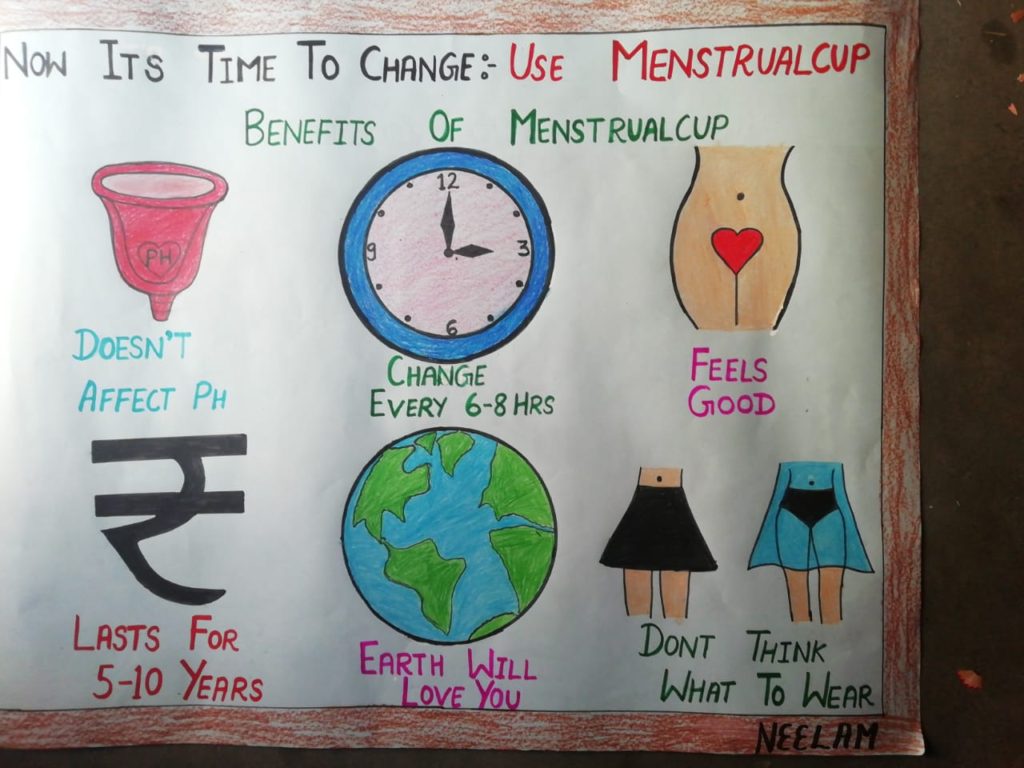 NOW ITS TIME TO CHANGE:- USE MENSTRUALCUP
BENEFITS OF MENSTRUALCUP
PH
DOESN'T
AFFECT PH
12
3
6
9
CHANGE
EVERY 6-8 HRS
FEELS
GOOD
₹
LASTS FOR
5-10 YEARS
EARTH WILL
LOVE YOU
DONT THINK
WHAT TO WEAR
NEELAM